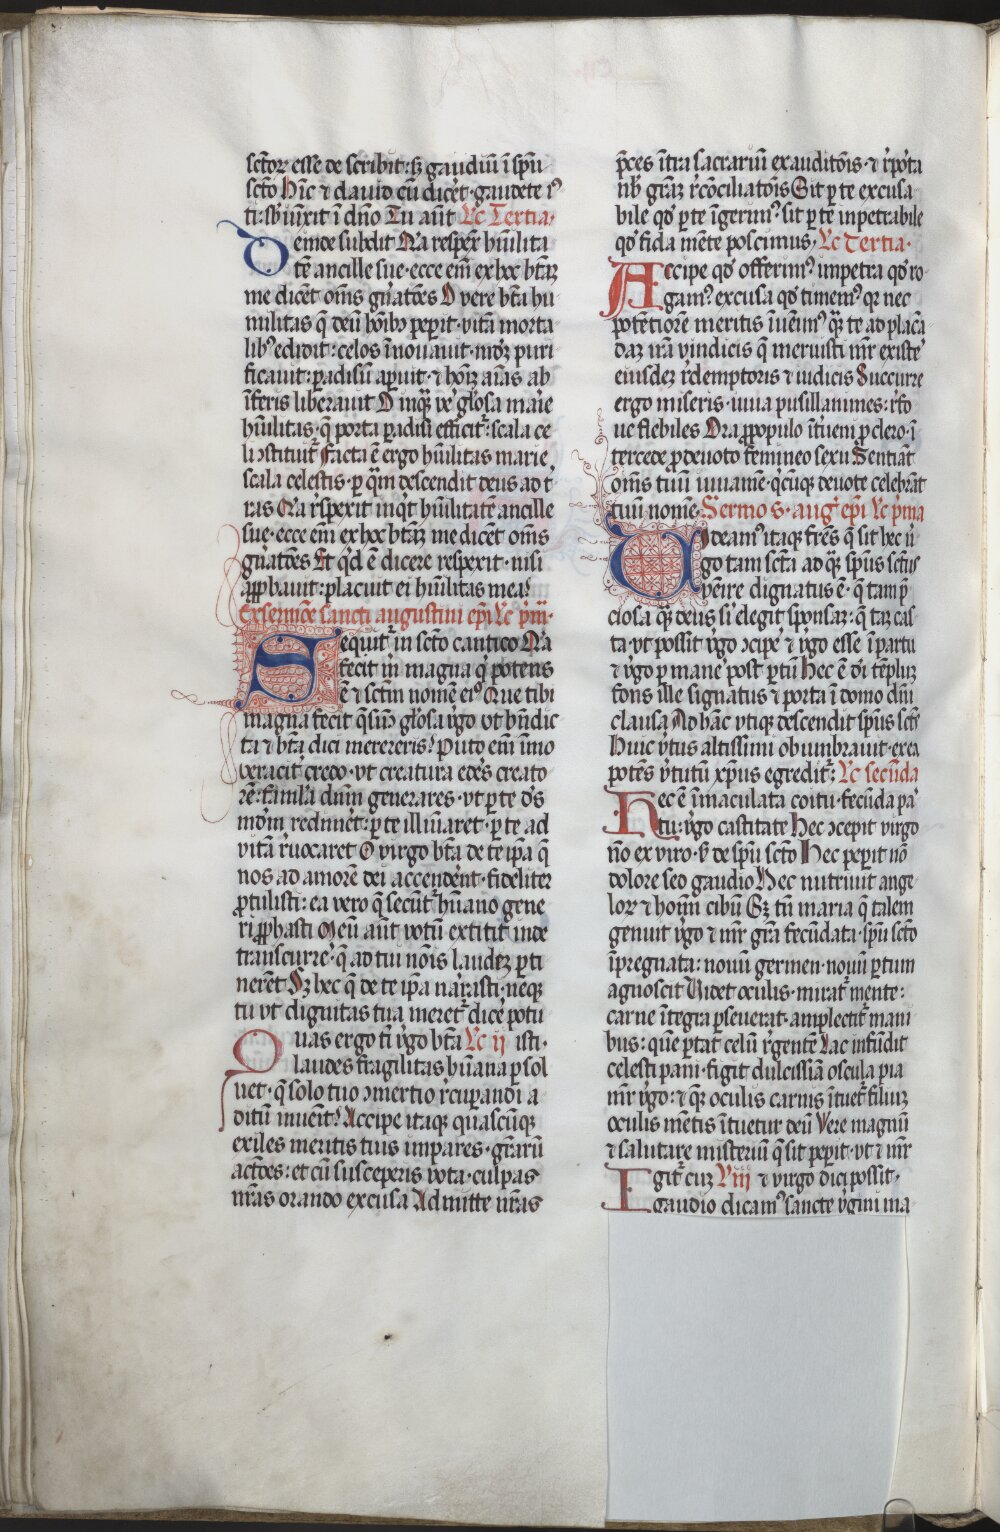 sctoꝝ esse de scribit: sꝫ gaudiū ī spū
scto Hīc ⁊ dauid cū dicēt · gaudete i
ti: sb' iūxit ī dn̄o Tu aūt Lc Tertia·
Deinde subdit Na respex̄ hūilita
tē ancille sue · ecce em̄ ex hoc btāꝫ
me dicēt om̄s gn̄atōes O vere btā hu
militas q̄ deū hōibꝫ peꝑit · vitā morta
libꝰ edidit: celos īnouauit · mōꝫ puri
ficauit: ꝑadisū aꝑuit · ⁊ hoīꝫ aīas ab
īferis liberauit O inqͣꝫ ve' gl'osa maīe
hūilitas · q̄ porta ꝑadisi efficit᷑: scala ce
li ↄstituit᷑ Facta ē ergo hūilitas marie
scala celestis · ꝑ qͣm descendit deus ad t'
ras Na r̄spexit inqt hūilitatē ancille
sue · ecce em̄ ex hoc btāꝫ me dicēt om̄s
gn̄atōes At qͥd ē dicere respexit · nisi
aꝓbauit: placuit ei hūilitas mea?
Ex sermōe sancti augustini epī Lc pͥm·
Sequit᷑ in scto cantico Na
fecit m̄ magna qͥ potens
ē ⁊ sctm̄ nomē eiꝰ Que tibi
magna fecit q̄so gl'osa v̄go vt bn̄dic
ta ⁊ btā dici merereris? Puto em̄ īmo
veracit̄ credo · vt creatura edēs creato
rē: famula dnm̄ generares · vt ꝑ te ds̄
mōm redimēt: ꝑ te illūiaret · ꝑ te ad
vitā r̄uocaret O virgo btā de te ip̄a q̄
nos ad amorē dei accenderēt · fideliter
ꝓtulisti: ea vero q̄ secūt᷑ hūano gene
ri ꝓbasti Meū aūt votū extitit inde
transcurre' · q̄ ad tui nōis laudeꝫ ꝑti
nerēt Sꝫ hec q̄ de te ip̄a narasti · neqꝫ
tu vt dignitas tua meret᷑ dice' potu
Quas ergo tī v̄go btā Lc ij isti·
laudes fragilitas hūana ꝑsol
uet · q̄ solo tuo ↄmertio r̄cuꝑandi a
ditū inuēit? Accipe itaqꝫ quascūqꝫ
exiles meritis tuis impares · grāꝝ
actōes: et cū susceperis vota · culpas
nr̄as orando excusa Admitte nr̄as
p̄ces īt̄ra sacrariū exauditōis · ⁊ r̄pōta
nb̄ grāꝫ r̄cōciliatōis Sit ꝑ te excusa
bile qd̄ ꝑ te īgerimꝰ · sit ꝑ te inpetrabile
qd̄ fida mēte poscimus · Lc Tertia·
Accipe qd̄ offerimꝰ impetra qd̄ ro
gamꝰ excusa qd̄ timemꝰ qꝛ nec
potētiorē meritis īuēimꝰ qͣꝫ te ad placā
daꝫ irā vindicis q̄ meruisti mr̄ existe'
eiusdeꝫ r̄demptoris ⁊ iudicis Succurre
ergo miseris · iuua pusillanimes: rf̄o
ue flebiles Ora ꝓ populo īt̄ueni ꝓ clero · ī
tercede ꝓ deuoto femineo sexu Sentiāt
om̄s tuū iuuamē · qͥcūqꝫ deuote celebrāt
tuū nomē Sermo s· aug' epī Lc pͥma
Videamꝰ itaqꝫ fr̄es q̄ sit hec ui
go tam scta ad qͣꝫ spūs sctus
venīre dignatus ē · q̄ tam p̄
ciosa qͣꝫ deus si' elegit sponsaꝫ: q̄ taꝫ cas
ta · vt possit v̄go ↄcipe' ⁊ v̄go esse ī partu
⁊ v̄go ꝑmane' post ꝑtū Hec ē di' tēpluꝫ
fons ille signatus ⁊ porta ī domo dn̄i
clausa Ad hāc vtiqꝫ descendit spūs sct'
Huic v̄tus altissimi obumbrauit · ex ea
potēs v̄tutū xp̄us egredit᷑: Lc secūda
Hec ē īmaculata coitu · fecūda pa'
tu: v̄go castitate Hec ↄcepit virgo
nō ex viro · s̄ de spū scto Hec peꝑit nō
dolore sed gaudio Hec nutriuit ange
loꝝ ⁊ hoīm cibū Gꝫ tū maria q̄ talem
genuit v̄go ⁊ mr̄ grā fecūdata · spū scto
īpregnata: nouū germen · nouū ꝑtum
agnoscit Videt oculis · mirat᷑ mente:
carne īt̄egra ꝑseuerat · amplectit᷑ mani
bus: quē ꝑtat celū r̄gentē Lac infūdit
celesti pani · figit dulcissīa oscula pia
mr̄ v̄go: ⁊ qͣꝫ oculis carnis ītuet᷑ filiuꝫ
oculis mētis ītuetur deū Vere magnū
⁊ salutare misteriū q̄ sit peꝑit · vt ⁊ mr̄
Igit᷑ cuꝫ Viij ⁊ virgo dici possit·
gaudio dicamꝰ sancte v̄gini ma